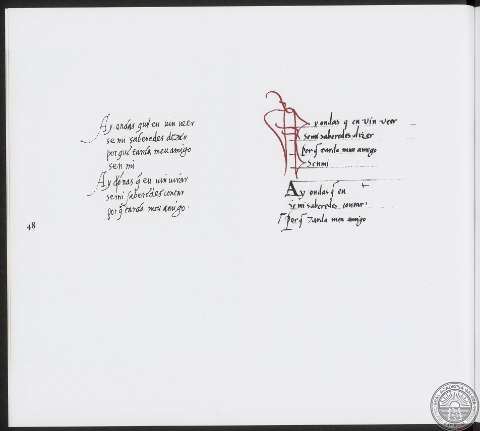 Ay ondas que eu vin veer
se mi saberedes dizer
por que tarda meu amigo
sen mi
Ay ondas q̃ eu vin mirar
se mi saberedes contar
por q̃ tarda meu amigo
48
Ay ondas q̃ eu vin veer
se mi saberedes dizer
por q̃ tarda meu amigo
sen mi
Ay ondas q̃ eu
se mi saberedes contar
por q̃ tarda meu amigo